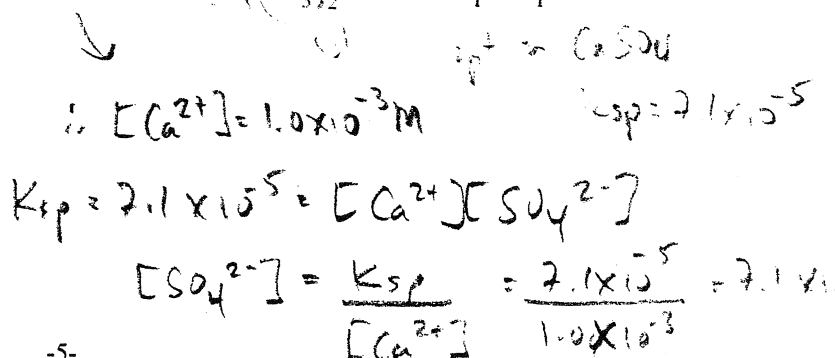 CaSO4
∴ [Ca²⁺] = 1.0x10⁻³ M
Ksp = 7.1x10⁻⁵
Ksp = 7.1 x 10⁻⁵ = [Ca²⁺][SO4²⁻]
[SO4²⁻] = Ksp / [Ca²⁺] = 7.1x10⁻⁵ / 1.0x10⁻³ = 7.1 x
-5-